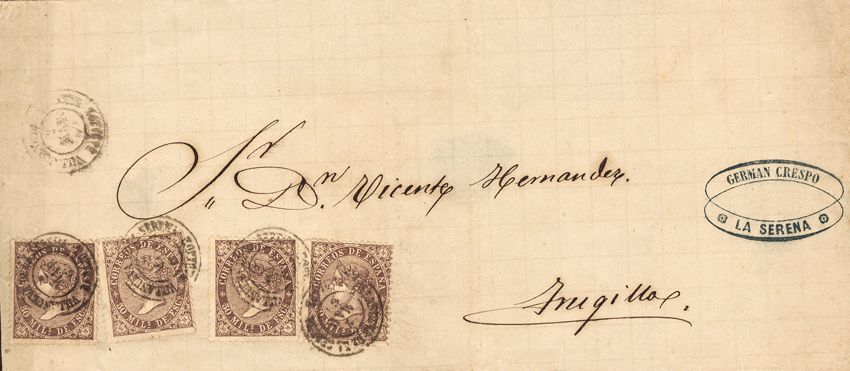 Sr
Dn. Vicente Hernandez.
Trugillo.
GERMAN CRESPO
LA SERENA
CORREOS DE ESPAÑA
50 MILS DE ESC
CORREOS DE ESPAÑA
50 MILS DE ESC
CORREOS DE ESPAÑA
50 MILS DE ESC
CORREOS DE ESPAÑA
50 MILS DE ESC